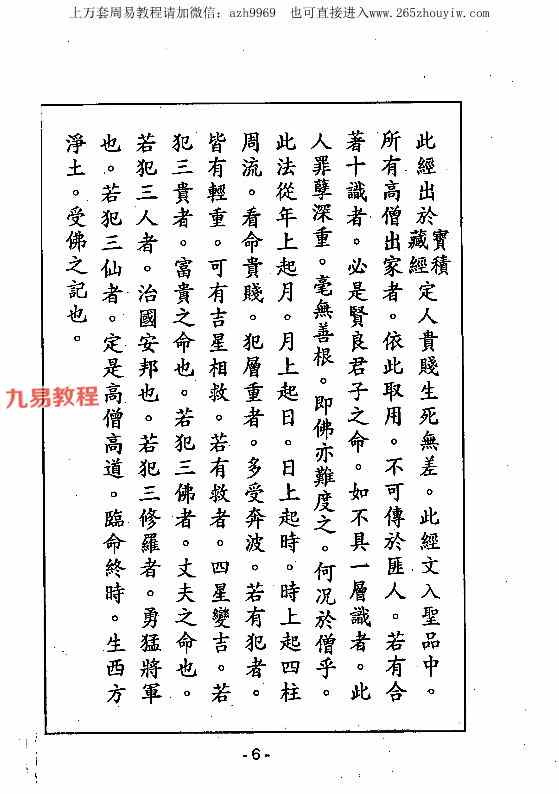 上万套周易教程请加微信：azh9969 也可直接进入www.265zhouyiw.com
此經出於寶積藏經定人貴賤生死無差。此經文入聖品中。
所有高僧出家者。依此取用。不可傳於匪人。若有合
著十識者。必是賢良君子之命。如不具一層識者。此
人罪孽深重。毫無善根。即佛亦難度之。何況於僧乎。
此法從年上起月。月上起日。日上起時。時上起四柱
周流。看命貴賤。犯層重者。多受奔波。若有犯者。
皆有輕重。可有吉星相救。若有救者。四星變吉。若
犯三貴者。富貴之命也。若犯三佛者。丈夫之命也。
若犯三人者。治國安邦也。若犯三修羅者。勇猛將軍
也。若犯三仙者。定是高僧高道。臨命終時。生西方
淨土。受佛之記也。
九易教程
-6-